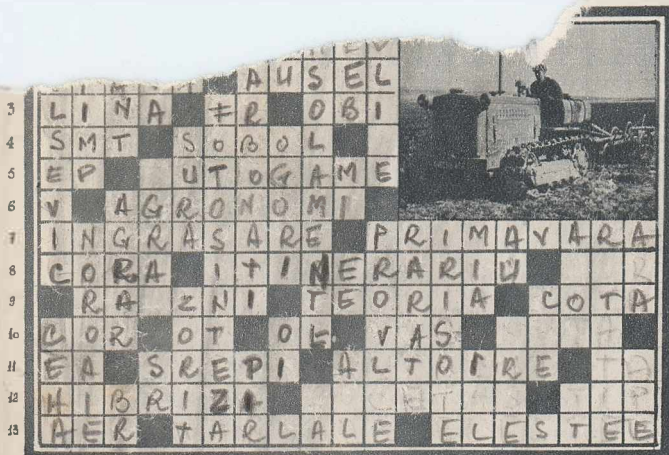 AUSEL
3 LINA FR OBI
4 SMT SOBOL
5 EP UTOGAME
6 V AGRONOMI
7 INGRASARE PRIMAVARA
8 CORA ITINERARIU
9 RA ZNI TEORIA COTA
10 COR OT OL VAS
11 EA SREPI ALTOIRE
12 HIBRIZI
13 AER TARLALE ELESTEE